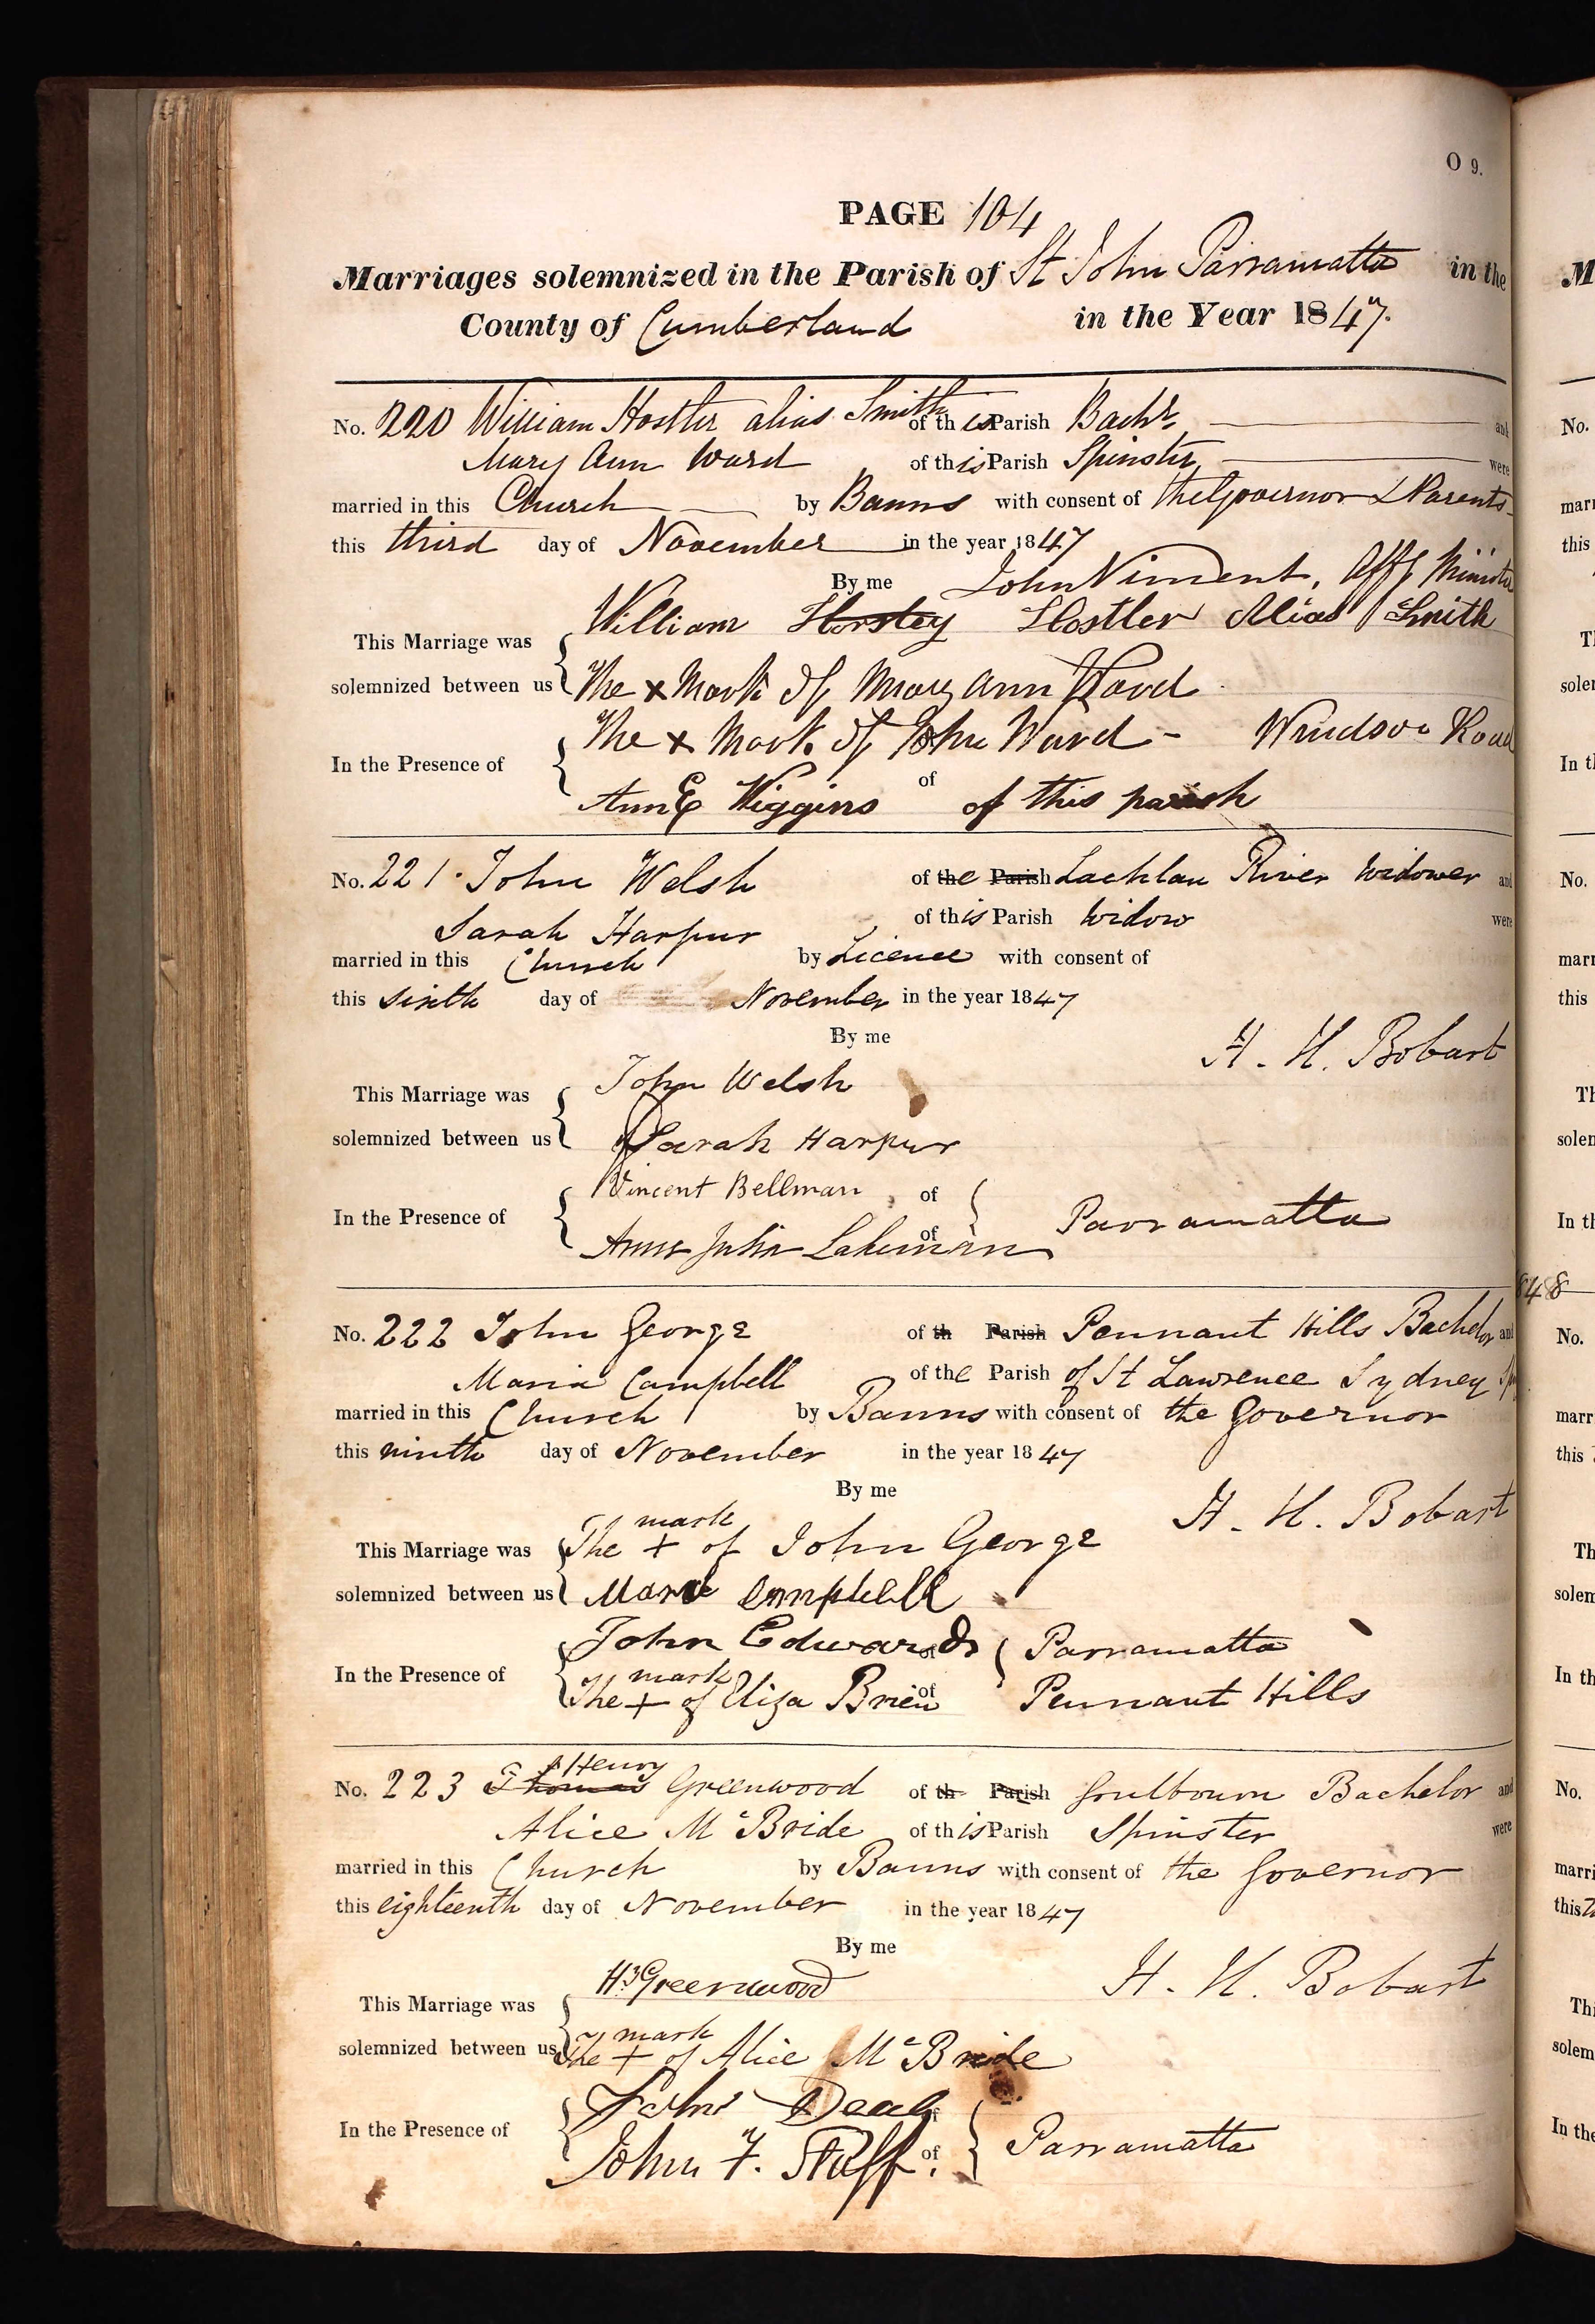 O 9.
PAGE 104
Marriages solemnized in the Parish of St John Parramatta in the
County of Cumberland in the Year 1847.
No. 220 William Hostler alias Smith of this Parish Bachr and
Mary Ann Ward of this Parish Spinster were
married in this Church by Banns with consent of the Governor & Parents
this third day of November in the year 1847
By me John Viment, Offg Minister
This Marriage was William Horsley Hostler Alias Smith
solemnized between us The x Mark of Mary Ann Ward
The x Mark of John Ward - Windsor Road
In the Presence of
Ann E Wiggins of of this parish
No. 221. John Welsh of the Parish Lachlan River Widower and
Sarah Harpur of this Parish Widow were
married in this Church by Licence with consent of
this sixth day of November in the year 1847
By me H. H. Bobart
This Marriage was John Welsh
solemnized between us Sarah Harpur
Vincent Bellman of
In the Presence of Parramatta
Anne Julia Lakeman of
No. 222 John George of th Parish Pennant Hills Bachelor and
Maria Campbell of the Parish of St Lawrence Sydney
married in this Church by Banns with consent of the Governor
this ninth day of November in the year 1847
By me H. H. Bobart
This Marriage was The mark + of John George
solemnized between us Maria Campbell
John Edwards of Parramatta
In the Presence of
The mark + of Eliza Brien of Pennant Hills
No. 223 Thomas Henry Greenwood of th Parish Goulbourn Bachelor and
Alice McBride of this Parish Spinster were
married in this Church by Banns with consent of the Governor
this eighteenth day of November in the year 1847
By me H. H. Bobart
This Marriage was Hy Greenwood
solemnized between us The mark + of Alice McBride
John of
In the Presence of Parramatta
John F. Staff. of